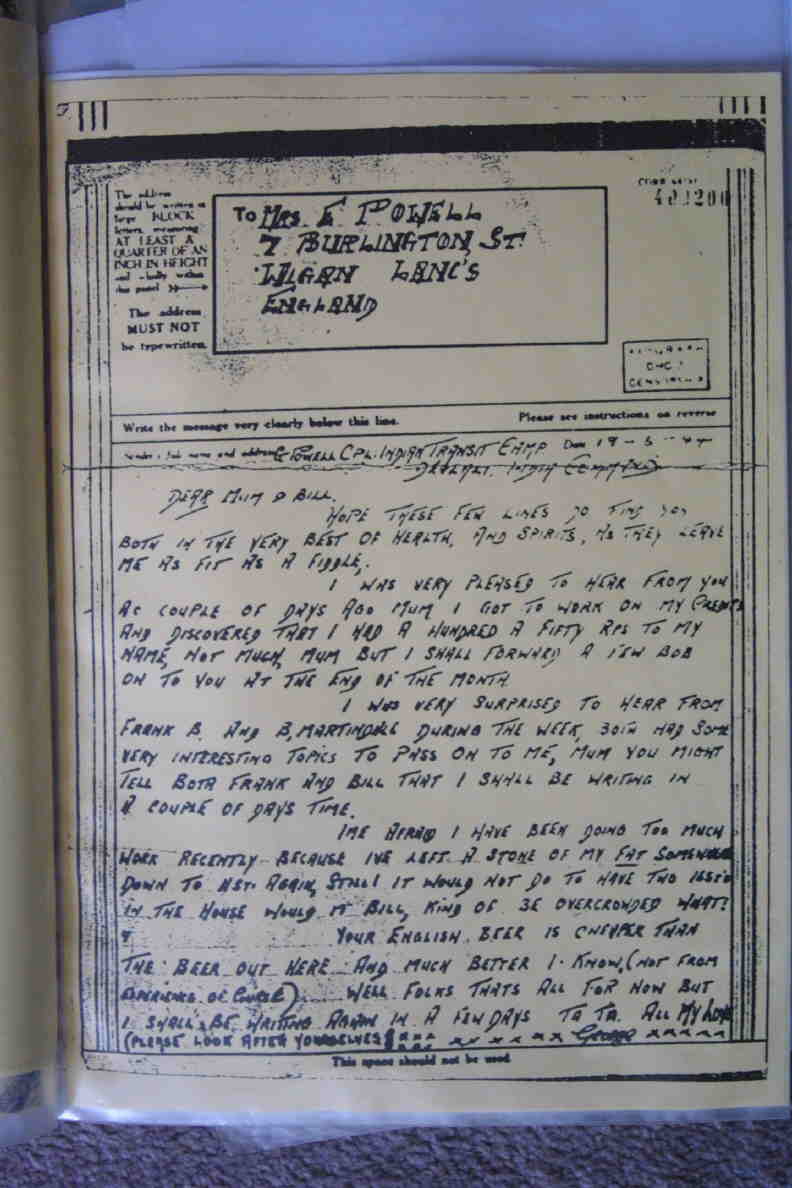 The address
should be written in
large BLOCK
letters, measuring
AT LEAST A
QUARTER OF AN
INCH IN HEIGHT
and wholly within
this panel
The address
MUST NOT
be typewritten.
To MRS. E POWELL
7 BURLINGTON, ST.
WIGAN LANC'S
ENGLAND
Write the message very clearly below this line.
Please see instructions on reverse
Sender's full name and address G POWELL CPL. INDIAN TRANSIT CAMP Date 19-5-44
DEOLALI. INDIA COMMAND
DEAR MUM & BILL.
HOPE THESE FEW LINES DO FIND YOU
BOTH IN THE VERY BEST OF HEALTH, AND SPIRITS, AS THEY LEAVE
ME AS FIT AS A FIDDLE.
I WAS VERY PLEASED TO HEAR FROM YOU
A COUPLE OF DAYS AGO MUM I GOT TO WORK ON MY CREDITS
AND DISCOVERED THAT I HAD A HUNDRED A FIFTY RPS TO MY
NAME, NOT MUCH, MUM BUT I SHALL FORWARD A FEW BOB
ON TO YOU AT THE END OF THE MONTH.
I WAS VERY SURPRISED TO HEAR FROM
FRANK B. AND B, MARTINDALE DURING THE WEEK, BOTH HAD SOME
VERY INTERESTING TOPICS TO PASS ON TO ME, MUM YOU MIGHT
TELL BOTH FRANK AND BILL THAT I SHALL BE WRITING IN
A COUPLE OF DAYS TIME.
IME AFRAID I HAVE BEEN DOING TOO MUCH
WORK RECENTLY BECAUSE IVE LEFT A STONE OF MY FAT SOMEWHERE
DOWN TO AGAIN, STILL! IT WOULD NOT DO TO HAVE TWO
IN THE HOUSE WOULD IT BILL, KIND OF BE OVERCROWDED WHAT!
YOUR ENGLISH. BEER IS CHEAPER THAN
THE BEER OUT HERE AND MUCH BETTER I KNOW, (NOT FROM
EXPERIENCE OF COURSE). WELL FOLKS THATS ALL FOR NOW BUT
I SHALL BE WRITING AGAIN IN A FEW DAYS TA TA. ALL MY LOVE
(PLEASE LOOK AFTER YOURSELVES) xxx xx x x x x GEORGE x x x x x
This space should not be used